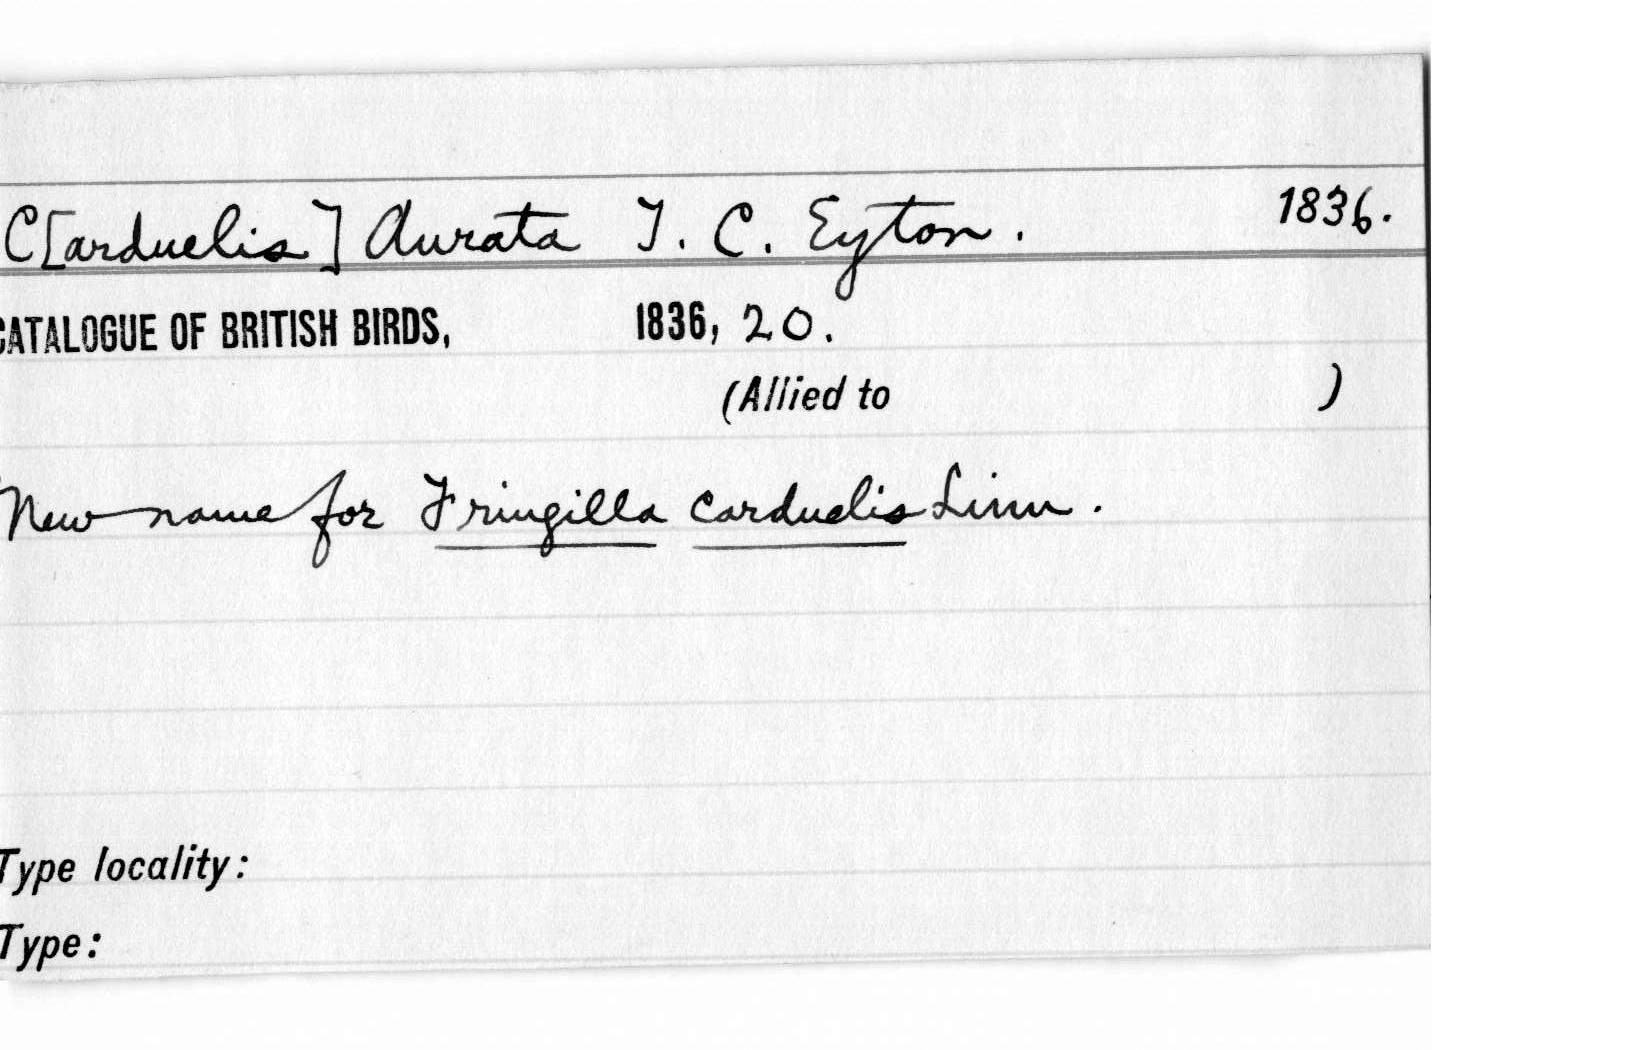 C[arduelis] Aurata T. C. Eyton. 1836.
CATALOGUE OF BRITISH BIRDS, 1836, 20.
(Allied to )
New name for Fringilla carduelis Linn.
Type locality:
Type: